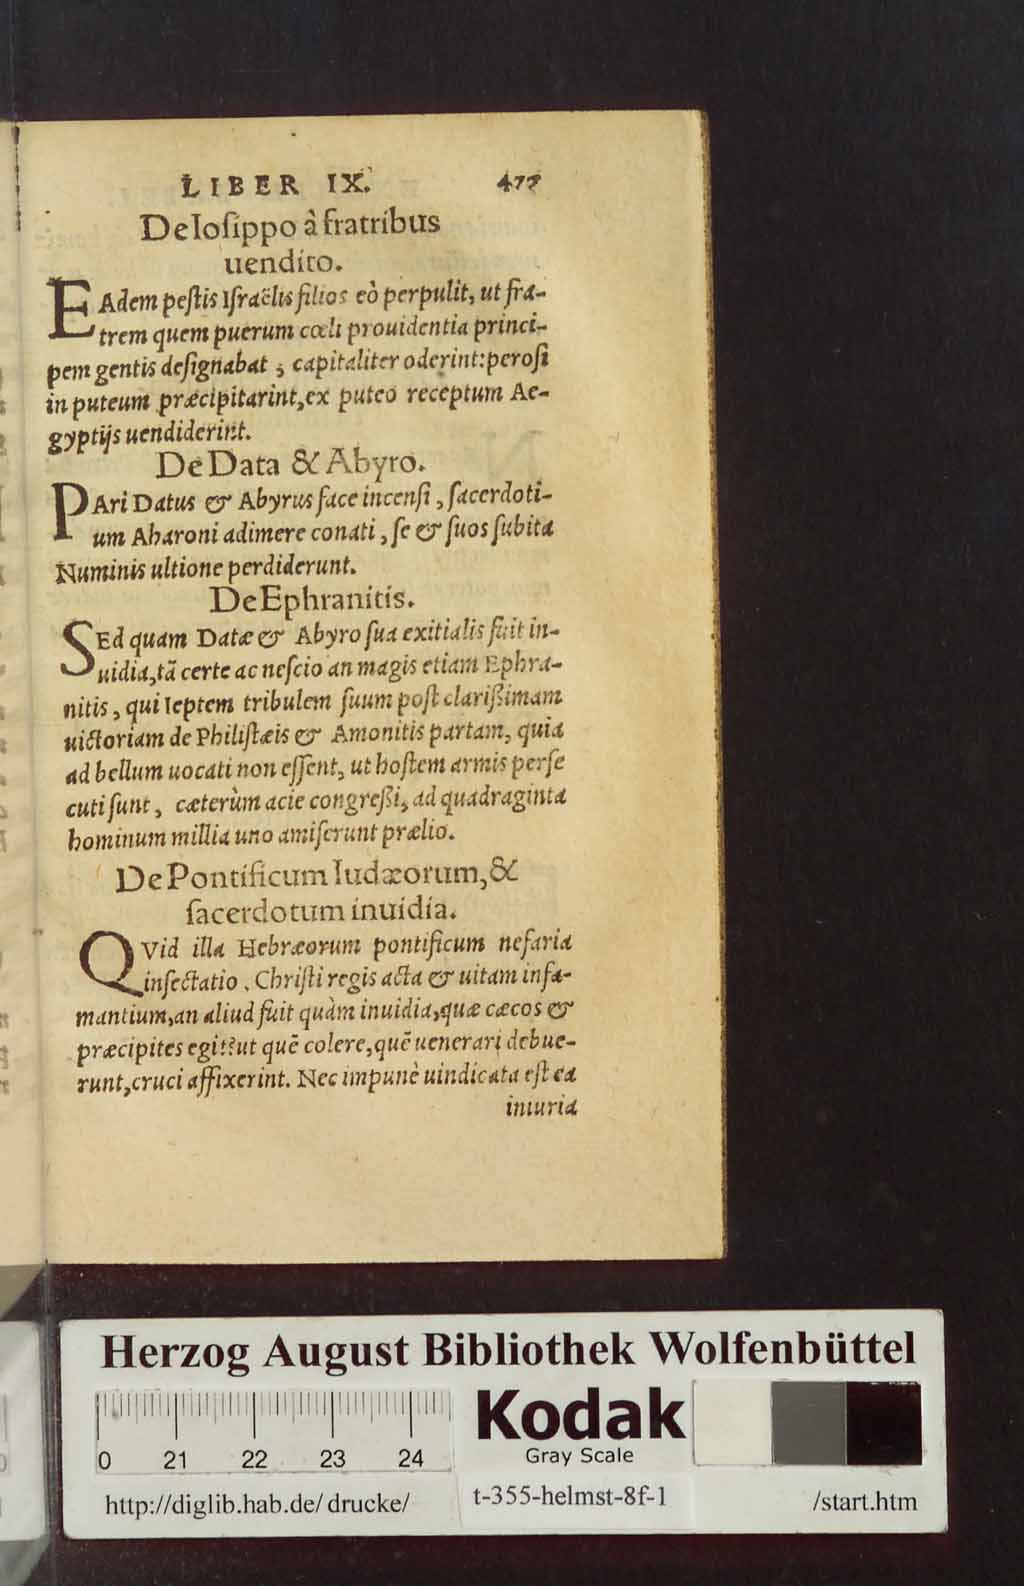 LIBER IX. 477
De Iosippo à fratribus
uendito.
EAdem pestis Israëlis filios eò perpulit, ut fra-
trem quem puerum cœli prouidentia princi-
pem gentis designabat, capitaliter oderint: perosi
in puteum præcipitarint, ex puteo receptum Ae-
gyptijs uendiderint.
De Data & Abyro.
PAri Datus & Abyrus face incensi, sacerdoti-
um Aharoni adimere conati, se & suos subita
Numinis ultione perdiderunt.
De Ephranitis.
SEd quam Datæ & Abyro sua exitialis fuit in-
uidia, tã certe ac nescio an magis etiam Ephra-
nitis, qui Ieptem tribulem suum post clarißimam
uictoriam de Philistæis & Amonitis partam, quia
ad bellum uocati non essent, ut hostem armis perse
cuti sunt, cæterùm acie congreßi, ad quadraginta
hominum millia uno amiserunt prælio.
De Pontificum Iudæorum, &
sacerdotum inuidia.
QVid illa Hebræorum pontificum nefaria
insectatio, Christi regis acta & uitam infa-
mantium, an aliud fuit quàm inuidia, quæ cæcos &
præcipites egit? ut quẽ colere, quẽ uenerari debue-
runt, cruci affixerint. Nec impunè uindicata est ea
iniuria
Herzog August Bibliothek Wolfenbüttel
0 21 22 23 24
Kodak
Gray Scale
http://diglib.hab.de/drucke/ t-355-helmst-8f-1 /start.htm